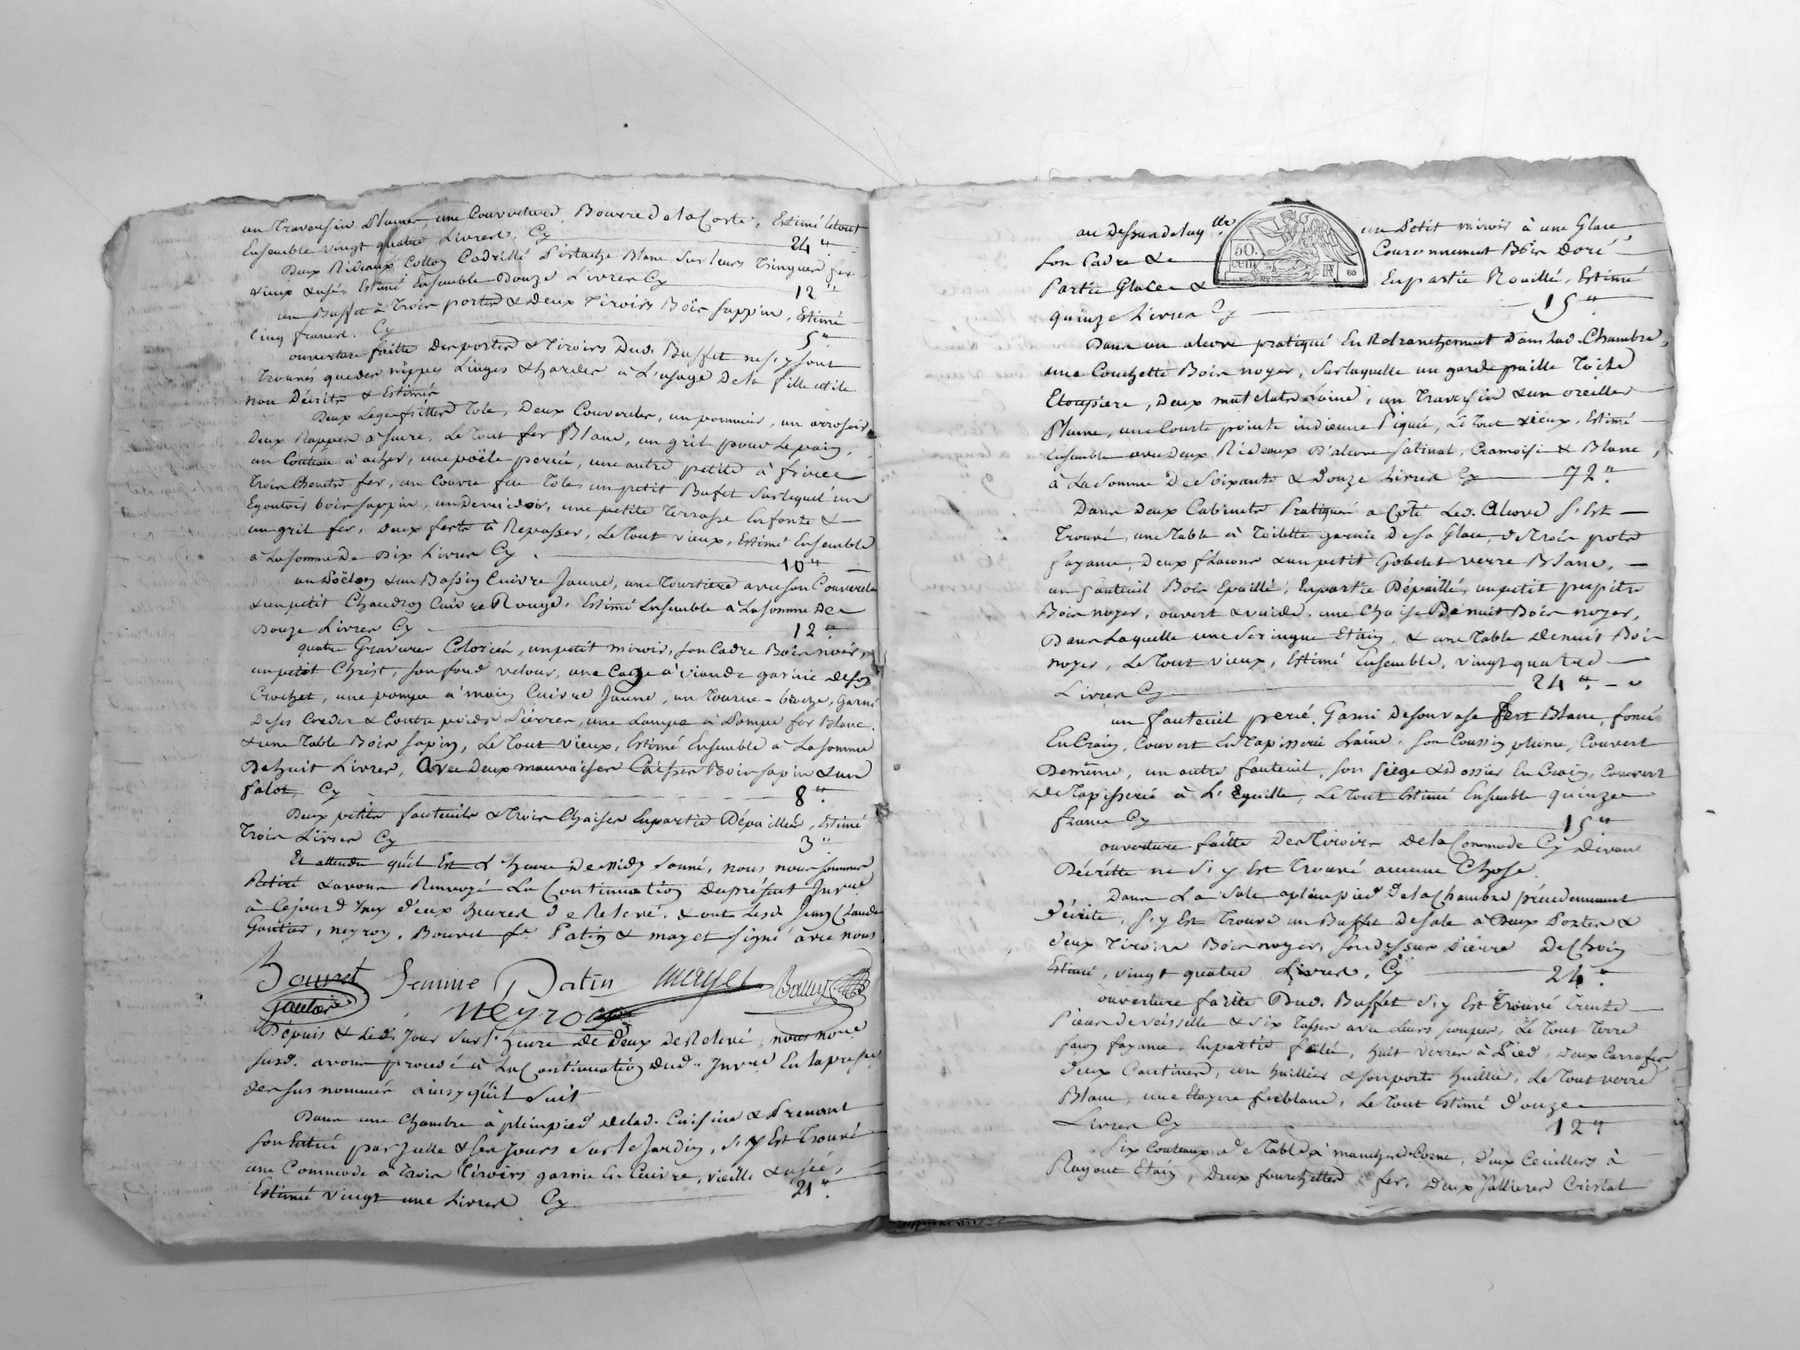 un Traversin Plume, une Couverture Bourre De la Coste, Estimé letout
Ensemble vingt quatre Livres, Cy 24 "
Deux Rideaux Cotton Cadrillé Pistache Blanc Sur leurs Tringles fer
vieux & usés Estimé Ensemble Douze Livres Cy 12 "
un Buffet à Trois portes & Deux Tiroirs Bois Sappin, Estimé
Cinq francs. Cy 5 "
ouverture faitte Des portes & Tiroirs Dud. Buffet ne s'y sont
Trouvés que des nippes Linges & hardes à L'usage De la fille
non Décrits & Estimés
Deux Tole, Deux Couvercles, un, un arrosoir
Deux Rappes à Sucre, Le Tout fer Blanc, un gril pour Le pain,
un Couteau à acher, une poële percée, une autre petite à frire
Trois Chenets fer, un Couvre feu Tole, un petit Bufet Sur lequel un
Egoutoir bois sappin, un Devidoir, une petite Terrasse En fonte &
un gril fer, Deux ferts à Repasser, Le Tout vieux, Estimé Ensemble
à La somme De Dix Livres Cy 10 "
un Poëlon & un Bassin Cuivre Jaune, une Tourtiere avec son Couvercle
& un petit Chaudron Cuivre Rouge. Estimé Ensemble à La somme De
Douze Livres Cy 12 "
quatre Gravures Coloriées, un petit miroir, son Cadre Bois noir,
un petit Christ, son fond velour, une Cage à viande garnie de son
Crochet, une pompe à main Cuivre Jaune, un Tourne-broche, Garni
De ses Cordes & Contre poids Pierres, une Lampe à Pompe fer Blanc
& une Table Bois sapin, Le Tout vieux, Estimé Ensemble à La somme
De huit Livres, Avec Deux mauvaises Caisses Bois sapin & un
falot Cy 8 "
Deux petits fauteuils & Trois Chaises En partie Dépaillés, Estimé
Trois Livres Cy 3 "
Et attendu qu'il Est L'heure De midy sonné, nous nous sommes
Retiré & avons Renvoyé La Continuation Du présent Inv.re
à Cejourd'huy Deux heures De Relevé. & ont Lesd. Jean Claude
Gautier, neyron, Bouvet fe. Patin & mayet signé avec nous
Bouvet Jeanne Patin mayet
Gautier neyron
Depuis & Led. Jour Sur L'heure De Deux De Relevé, nous no.re
susd. avons procedé à La Continuation Dud. Inv.re En La prés.ce
des sus nommés ainsy qu'il suit
Dans une Chambre à pleinpied De lad. Cuisine & Prenant
Son Entrée par Jcelle & Ses Jours Sur le Jardin, S'y Est Trouvé
une Commode à Trois Tiroirs garnie En Cuivre, vieille & usée,
Estimé vingt une Livres Cy 21 "
au Dessus de laq.lle un Petit miroir à une Glace
Son Cadre & Couronnement Bois Doré
Partie Glace & En partie Rouillé, Estimé
quinze Livres Cy 15 "
Dans un alcove pratiqué En Retranchement Dans lad. Chambre,
une Couchette Bois noyer, Sur laquelle un garde paille Toile
Etoupiere, Deux matelats Laine, un Traversin & un oreiller
Plume, une Courte pointe indienne Piquée, Le Tout vieux, Estimé
Ensemble avec Deux Rideaux D'alcove Satinat, Cramoisi & Blanc,
à La somme De Soixante & Douze Livres Cy 72 "
Dans Deux Cabinets Pratiqués a Coté Led. Alcove S'Est
Trouvé, une Table à Toilette garnie De sa Glace, de Trois pots
fayance, Deux flacons & un petit Gobelet verre Blanc,
un fauteuil Bois Epaillé, En partie Dépaillé, un petit pupitre
Bois noyer, ouvert & vuide, une Chaise De nuit Bois noyer,
Dans Laquelle une Seringue Etain, & une Table De nuit Bois
noyer, Le Tout vieux, Estimé Ensemble, vingt quatre
Livres Cy 24 "
un fauteuil percé, Garni De son vase fert Blanc, foncé
En Crain, Couvert En Tapisserie Laine, son Coussin plume, Couvert
De même, un autre fauteuil, son Siège & Dossier En Crain, Couvert
De Tapisserie à L'Eguille, Le Tout Estimé Ensemble quinze
francs Cy 15 "
ouverture faitte Des Tiroirs De la Commode Cy Devant
Décritte ne S'y Est Trouvé aucune Chose.
Dans La Sale a pleinpied De la Chambre précedemment
Décrite, S'y Est Trouvé un Buffet De Sale à Deux Portes &
Deux Tiroirs Bois noyer, Son Dessus Pierre De Choin
Estimé, vingt quatre Livres, Cy 24 "
ouverture faitte Dud. Buffet S'y Est Trouvé Trente
Pieces de veisselle & Six Tasses avec Leurs soupes, Le Tout Terre
façon fayance, En partie félée, huit verres à Pied, Deux Carrafes
Deux Cantines, un huillier & son porte huillier, Le Tout verre
Blanc, une ferblanc, Le Tout Estimé Douze
Livres Cy 12 "
Six Couteaux De Table à manche de Corne, Deux Ceuillers à
Ragout Etain, Deux fourchettes fer, Deux Sallieres Cristal